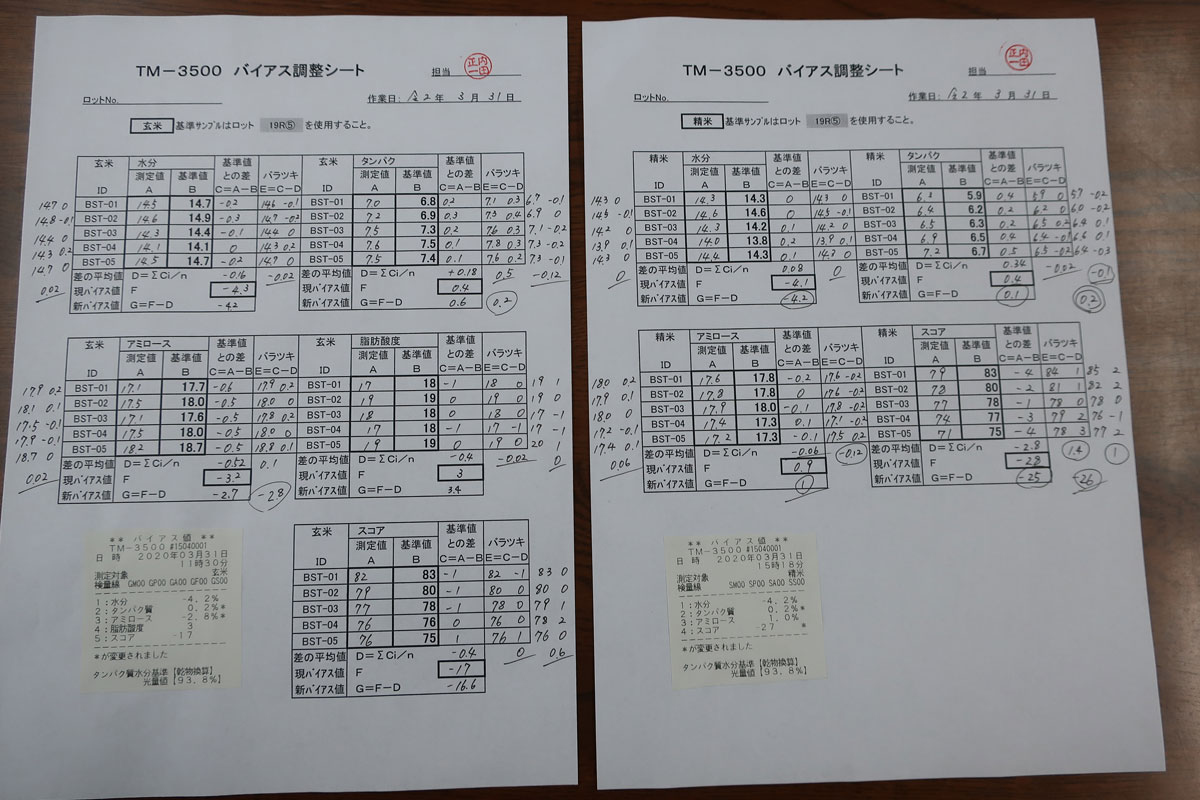 TM-3500 バイアス調整シート
担当
正内一田
ロットNo.
作業日: 令2年 3月 31日
玄米 基準サンプルはロット 19R⑤ を使用すること。
玄米 水分 基準値との差 バラツキ 玄米 タンパク 基準値との差 バラツキ
ID 測定値A 基準値B C=A-B E=C-D ID 測定値A 基準値B C=A-B E=C-D
14.7 0 BST-01 14.5 14.7 -0.2 14.6 -0.1 BST-01 7.0 6.8 0.2 7.1 0.3 6.7 -0.1
14.8 -0.1 BST-02 14.6 14.9 -0.3 14.7 -0.2 BST-02 7.2 6.9 0.3 7.3 0.4 6.9 0
14.4 0 BST-03 14.3 14.4 -0.1 14.4 0 BST-03 7.5 7.3 0.2 7.6 0.3 7.1 -0.2
14.3 0.2 BST-04 14.1 14.1 0 14.3 0.2 BST-04 7.6 7.5 0.1 7.8 0.3 7.3 -0.2
14.7 0 BST-05 14.5 14.7 -0.2 14.7 0 BST-05 7.5 7.4 0.1 7.6 0.2 7.3 -0.1
0.02 差の平均値 D=ΣCi/n -0.6 -0.02 差の平均値 D=ΣCi/n +0.18 0.5 -0.12
現バイアス値 F -4.3 現バイアス値 F 0.4
新バイアス値 G=F-D -4.2 新バイアス値 G=F-D 0.6 0.2
玄米 アミロース 基準値との差 バラツキ 玄米 脂肪酸度 基準値との差 バラツキ
ID 測定値A 基準値B C=A-B E=C-D ID 測定値A 基準値B C=A-B E=C-D
17.9 0.2 BST-01 17.1 17.7 -0.6 17.9 0.2 BST-01 17 18 -1 18 0 19 1
18.1 0.1 BST-02 17.5 18.0 -0.5 18.0 0 BST-02 19 19 0 19 0 19 0
17.5 -0.1 BST-03 17.1 17.6 -0.5 17.8 0.2 BST-03 18 18 0 18 0 17 -1
17.9 -0.1 BST-04 17.5 18.0 -0.5 18.0 0 BST-04 17 18 -1 17 -1 17 -1
18.7 0 BST-05 18.2 18.7 -0.5 18.8 0.1 BST-05 19 19 0 19 0 20 1
0.02 差の平均値 D=ΣCi/n -0.52 0.1 差の平均値 D=ΣCi/n -0.4 -0.02 0
現バイアス値 F -3.2 現バイアス値 F 3
新バイアス値 G=F-D -2.7 -2.8 新バイアス値 G=F-D 3.4
玄米 スコア 基準値との差 バラツキ
ID 測定値A 基準値B C=A-B E=C-D
BST-01 82 83 -1 82 -1 83 0
BST-02 79 80 -1 80 0 80 0
BST-03 77 78 -1 78 0 79 1
BST-04 76 76 0 76 0 78 2
BST-05 76 75 1 76 1 76 0
差の平均値 D=ΣCi/n -0.4 0 0.6
現バイアス値 F -17
新バイアス値 G=F-D -16.6
** バイアス値 **
TM-3500 #15040001
日 時 2020年03月31日
11時30分
測定対象 玄米
検量線 GM00 GP00 GA00 GF00 GS00
1:水分 -4.2%
2:タンパク質 0.2%*
3:アミロース -2.8%*
4:脂肪酸度 3
5:スコア -17
*が変更されました
タンパク質水分基準【乾物換算】
光量値【93.8%】
TM-3500 バイアス調整シート
担当
正内一田
ロットNo.
作業日: 令2年 3月 31日
精米 基準サンプルはロット 19R⑤ を使用すること。
精米 水分 基準値との差 バラツキ 精米 タンパク 基準値との差 バラツキ
ID 測定値A 基準値B C=A-B E=C-D ID 測定値A 基準値B C=A-B E=C-D
14.3 0 BST-01 14.3 14.3 0 14.3 0 BST-01 6.3 5.9 0.4 5.9 0 5.7 -0.2
14.5 -0.1 BST-02 14.6 14.6 0 14.5 -0.1 BST-02 6.4 6.2 0.2 6.2 0 6.0 -0.2
14.2 0 BST-03 14.3 14.2 0.1 14.2 0 BST-03 6.5 6.3 0.2 6.5 0.2 6.4 0.1
13.9 0.1 BST-04 14.0 13.8 0.2 13.9 0.1 BST-04 6.9 6.5 0.4 6.4 -0.1 6.6 0.1
14.3 0 BST-05 14.4 14.3 0.1 14.3 0 BST-05 7.2 6.7 0.5 6.5 -0.2 6.4 -0.3
0 差の平均値 D=ΣCi/n 0.08 0 差の平均値 D=ΣCi/n 0.34 -0.02 -0.1
現バイアス値 F -4.1 現バイアス値 F 0.4
新バイアス値 G=F-D -4.2 新バイアス値 G=F-D 0.1 0.2
精米 アミロース 基準値との差 バラツキ 精米 スコア 基準値との差 バラツキ
ID 測定値A 基準値B C=A-B E=C-D ID 測定値A 基準値B C=A-B E=C-D
18.0 0.2 BST-01 17.6 17.8 -0.2 17.6 -0.2 BST-01 79 83 -4 84 1 85 2
17.9 0.1 BST-02 17.8 17.8 0 17.6 -0.2 BST-02 78 80 -2 81 1 82 2
18.0 0 BST-03 17.9 18.0 -0.1 17.8 -0.2 BST-03 77 78 -1 78 0 78 0
17.2 -0.1 BST-04 17.4 17.3 0.1 17.1 -0.2 BST-04 74 77 -3 79 2 76 -1
17.4 0.1 BST-05 17.2 17.3 -0.1 17.5 0.2 BST-05 71 75 -4 78 3 77 2
0.06 差の平均値 D=ΣCi/n -0.06 -0.12 差の平均値 D=ΣCi/n -2.8 1.4 1
現バイアス値 F 0.9 現バイアス値 F -28
新バイアス値 G=F-D 1 新バイアス値 G=F-D -25 -26
** バイアス値 **
TM-3500 #15040001
日 時 2020年03月31日
15時18分
測定対象 精米
検量線 SM00 SP00 SA00 SS00
1:水分 -4.2%
2:タンパク質 0.2%*
3:アミロース 1.0%
4:スコア -27 *
*が変更されました
タンパク質水分基準【乾物換算】
光量値【93.8%】